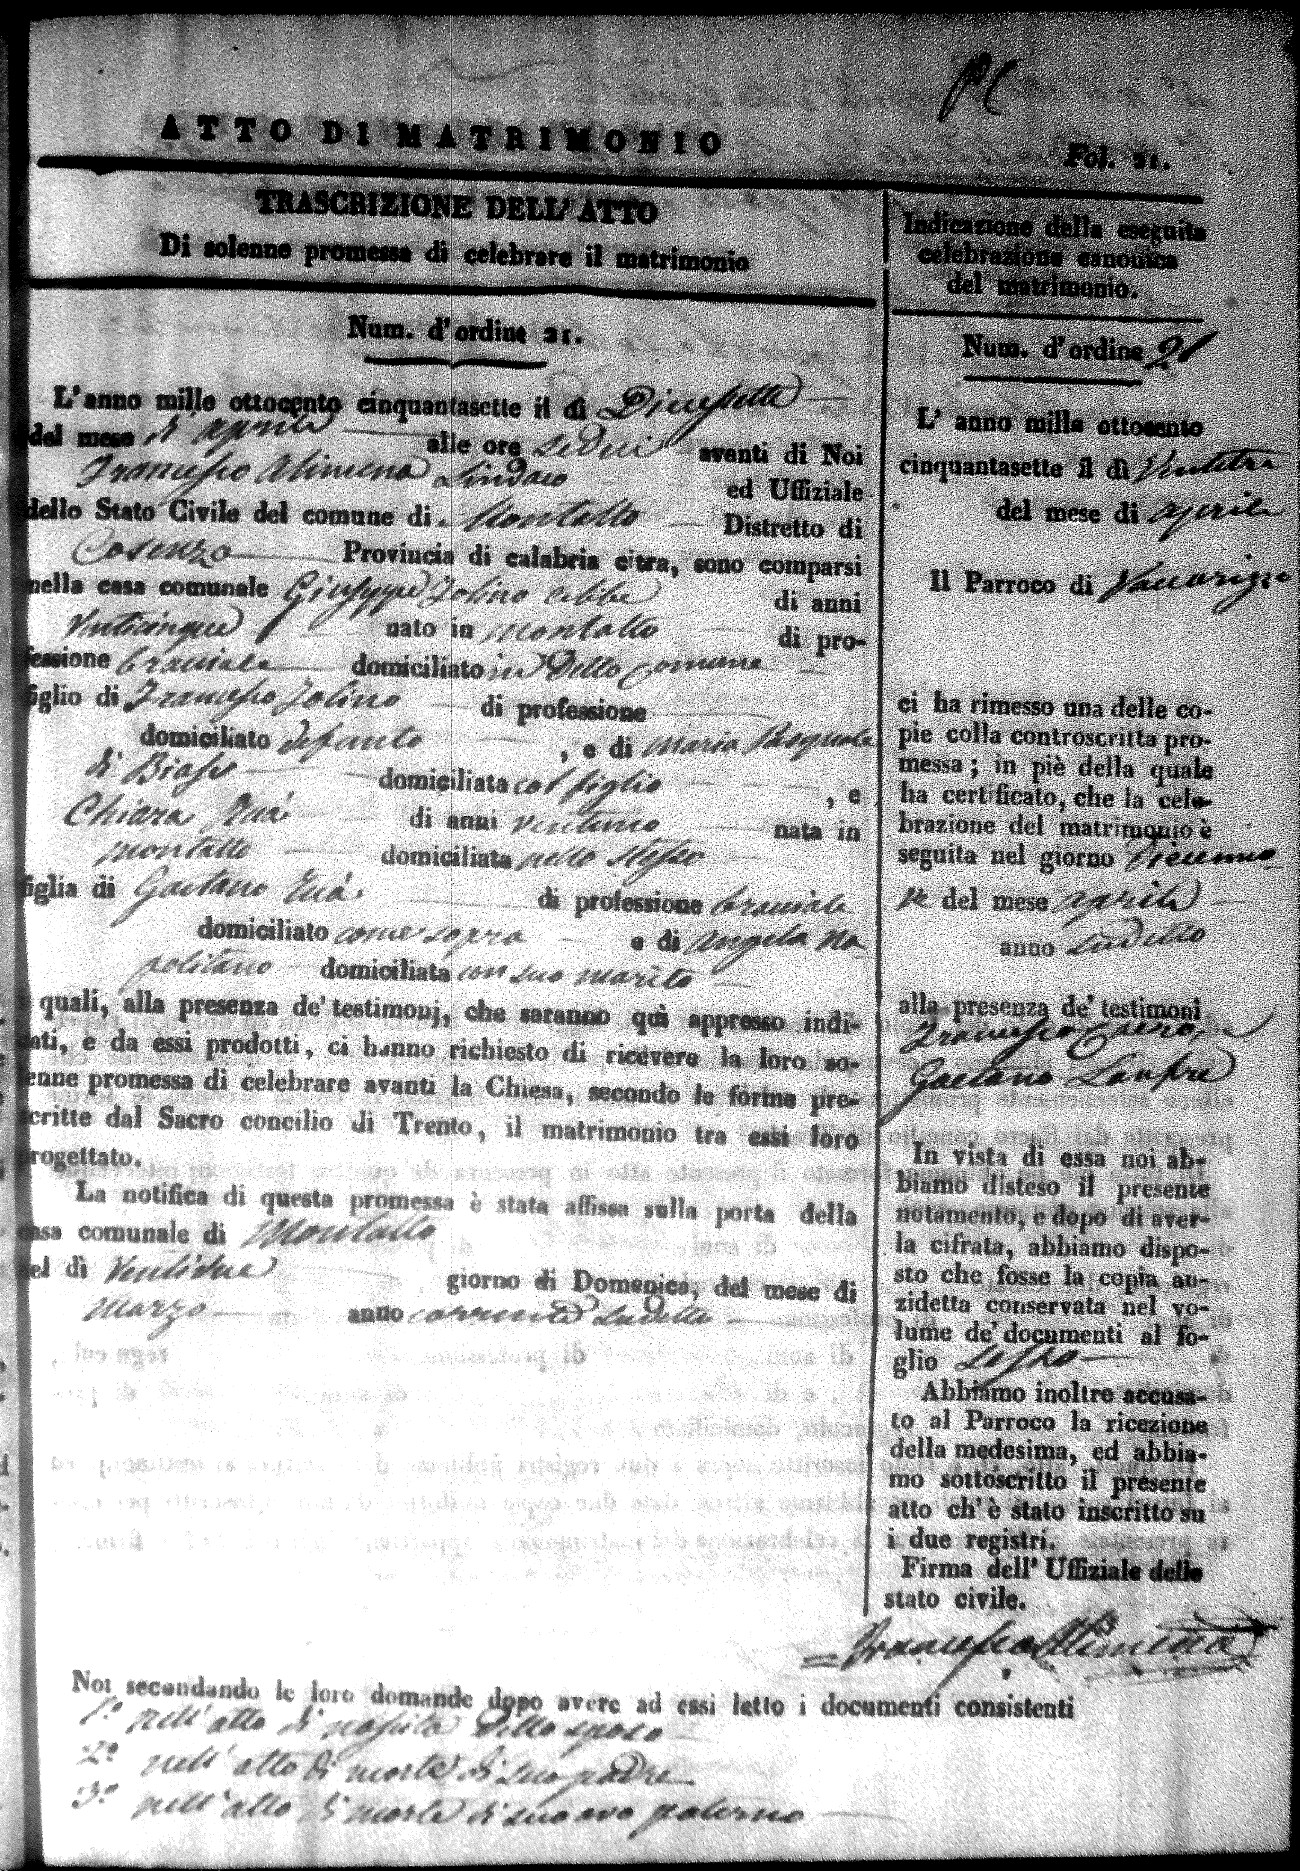 ATTO DI MATRIMONIO
Fol. 21.
TRASCRIZIONE DELL' ATTO
Di solenne promessa di celebrare il matrimonio
Num. d' ordine 21.
L' anno mille ottocento cinquantasette il dì Diciassette
del mese di aprile alle ore sedici avanti di Noi
Francesco Alimena Sindaco ed Uffiziale
dello Stato Civile del comune di Montalto Distretto di
Cosenza Provincia di calabria citra, sono comparsi
nella casa comunale Giuseppe di anni
Venticinque nato in Montalto di pro-
fessione bracciale domiciliato in detto comune
figlio di Francesco di professione
domiciliato defunto , e di Maria Pasquale
di Biase domiciliata col figlio , e
Chiara di anni ventuno nata in
Montalto domiciliata nello stesso
figlia di Gaetano di professione bracciale
domiciliato come sopra e di Angela Na
politano domiciliata con suo marito
quali, alla presenza de' testimonj, che saranno quì appresso indi-
cati, e da essi prodotti, ci hanno richiesto di ricevere la loro so-
lenne promessa di celebrare avanti la Chiesa, secondo le forme pre-
scritte dal Sacro concilio di Trento, il matrimonio tra essi loro
progettato.
La notifica di questa promessa è stata affissa sulla porta della
casa comunale di Montalto
nel dì Ventidue giorno di Domenica, del mese di
Marzo anno corrente suddetto
Indicazione della eseguita
celebrazione canonica
del matrimonio.
Num. d' ordine 21
L' anno mille ottocento
cinquantasette il dì Ventitre
del mese di aprile
Il Parroco di Vaccarizzo
ci ha rimesso una delle co-
pie colla controscritta pro-
messa; in piè della quale
ha certificato, che la cele-
brazione del matrimonio è
seguita nel giorno diecinno
ve del mese aprile
anno suddetto
alla presenza de' testimoni
Francesco
Gaetano
In vista di essa noi ab-
biamo disteso il presente
notamento, e dopo di aver-
la cifrata, abbiamo dispo-
sto che fosse la copia an-
zidetta conservata nel vo-
lume de' documenti al fo-
glio
Abbiamo inoltre accusa-
to al Parroco la ricezione
della medesima, ed abbia-
mo sottoscritto il presente
atto ch' è stato inscritto su
i due registri.
Firma dell' Uffiziale dello
stato civile.
Francesco Alimena
Noi secondando le loro domande dopo avere ad essi letto i documenti consistenti
1.° nell' atto di nascita dello sposo
2.° nell' atto di morte di suo padre
3.° nell' atto di morte di suo avo paterno